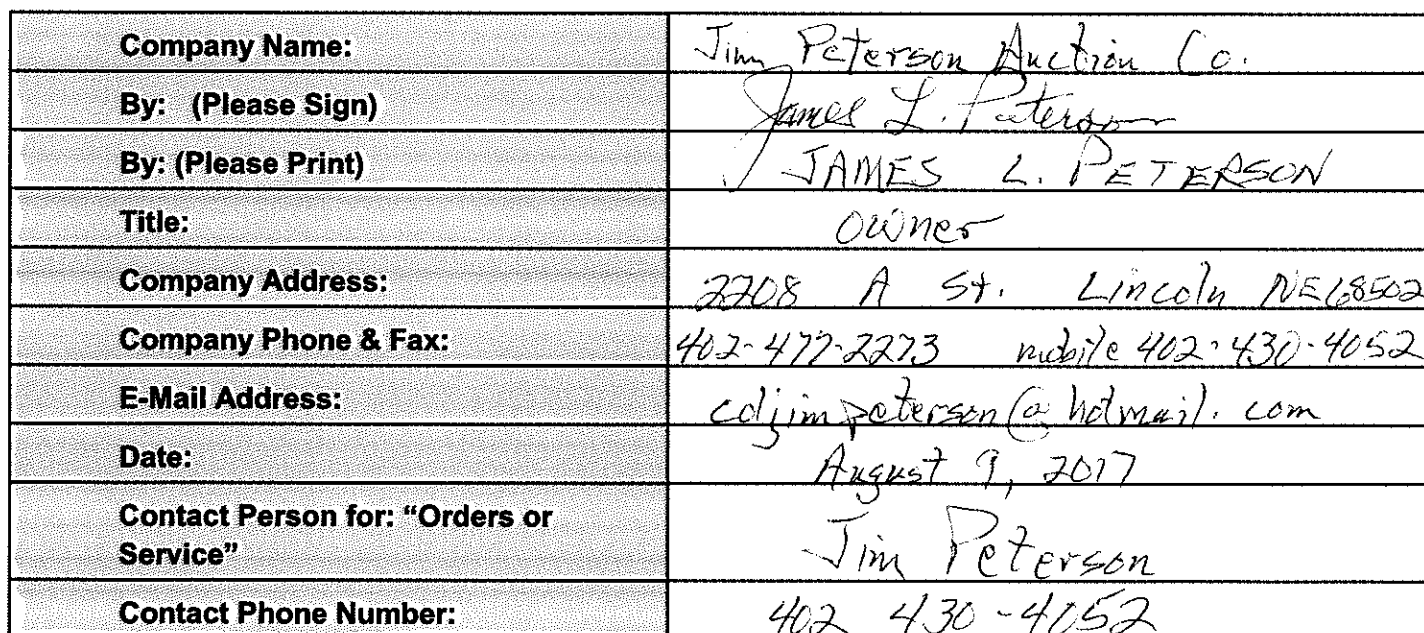 Company Name: Jim Peterson Auction Co.
By: (Please Sign) James L. Peterson
By: (Please Print) JAMES L. PETERSON
Title: Owner
Company Address: 2208 A St. Lincoln NE 68502
Company Phone & Fax: 402-477-2273 mobile 402-430-4052
E-Mail Address: coljimpeterson@hotmail.com
Date: August 9, 2017
Contact Person for: “Orders or
Service” Jim Peterson
Contact Phone Number: 402 430-4052